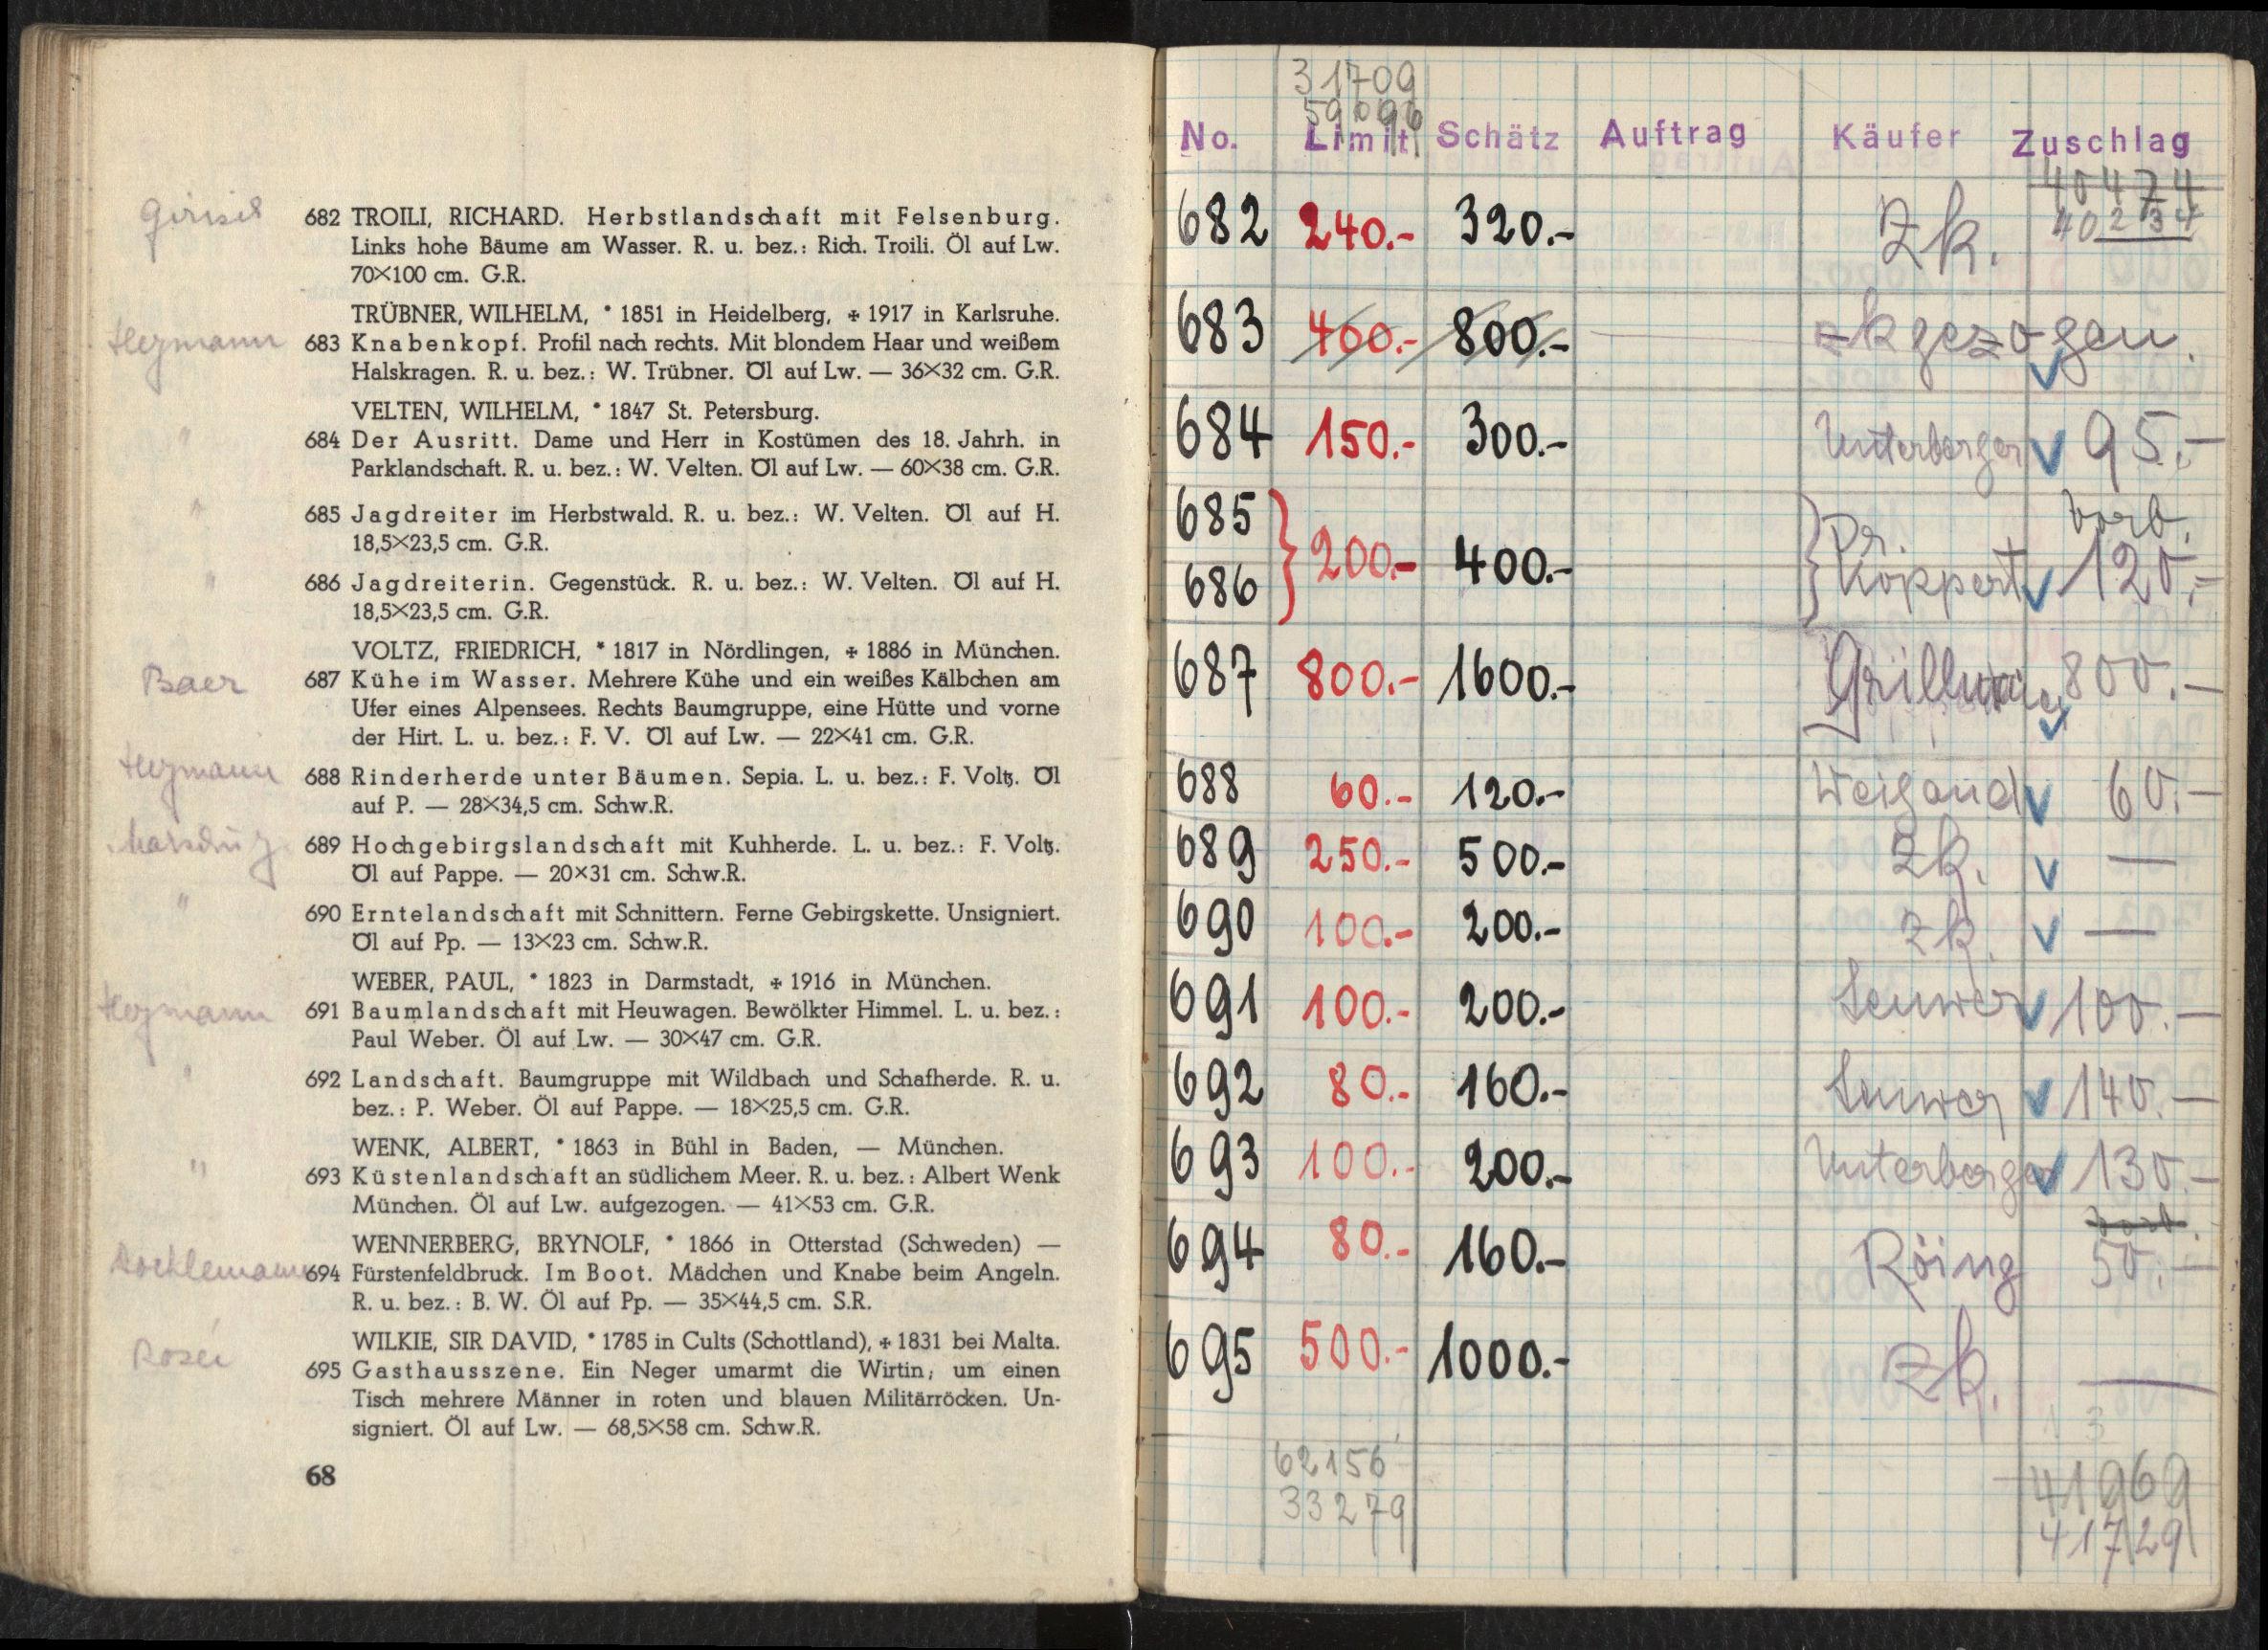 682 TROILI, RICHARD. Herbstlandschaft mit Felsenburg.
Links hohe Bäume am Wasser. R. u. bez.: Rich. Troili. Öl auf Lw.
70×100 cm. G.R.
TRÜBNER, WILHELM, * 1851 in Heidelberg, ✠ 1917 in Karlsruhe.
Heymann 683 Knabenkopf. Profil nach rechts. Mit blondem Haar und weißem
Halskragen. R. u. bez.: W. Trübner. Öl auf Lw. — 36×32 cm. G.R.
VELTEN, WILHELM, * 1847 St. Petersburg.
" 684 Der Ausritt. Dame und Herr in Kostümen des 18. Jahrh. in
Parklandschaft. R. u. bez.: W. Velten. Öl auf Lw. — 60×38 cm. G.R.
" 685 Jagdreiter im Herbstwald. R. u. bez.: W. Velten. Öl auf H.
18,5×23,5 cm. G.R.
" 686 Jagdreiterin. Gegenstück. R. u. bez.: W. Velten. Öl auf H.
18,5×23,5 cm. G.R.
VOLTZ, FRIEDRICH, * 1817 in Nördlingen, ✠ 1886 in München.
Baer 687 Kühe im Wasser. Mehrere Kühe und ein weißes Kälbchen am
Ufer eines Alpensees. Rechts Baumgruppe, eine Hütte und vorne
der Hirt. L. u. bez.: F. V. Öl auf Lw. — 22×41 cm. G.R.
Heymann 688 Rinderherde unter Bäumen. Sepia. L. u. bez.: F. Voltz. Öl
auf P. — 28×34,5 cm. Schw.R.
689 Hochgebirgslandschaft mit Kuhherde. L. u. bez.: F. Voltz.
Öl auf Pappe. — 20×31 cm. Schw.R.
" 690 Erntelandschaft mit Schnittern. Ferne Gebirgskette. Unsigniert.
Öl auf Pp. — 13×23 cm. Schw.R.
WEBER, PAUL, * 1823 in Darmstadt, ✠ 1916 in München.
Heymann 691 Baumlandschaft mit Heuwagen. Bewölkter Himmel. L. u. bez.:
Paul Weber. Öl auf Lw. — 30×47 cm. G.R.
" 692 Landschaft. Baumgruppe mit Wildbach und Schafherde. R. u.
bez.: P. Weber. Öl auf Pappe. — 18×25,5 cm. G.R.
WENK, ALBERT, * 1863 in Bühl in Baden, — München.
" 693 Küstenlandschaft an südlichem Meer. R. u. bez.: Albert Wenk
München. Öl auf Lw. aufgezogen. — 41×53 cm. G.R.
WENNERBERG, BRYNOLF, * 1866 in Otterstad (Schweden) —
694 Fürstenfeldbruck. Im Boot. Mädchen und Knabe beim Angeln.
R. u. bez.: B. W. Öl auf Pp. — 35×44,5 cm. S.R.
WILKIE, SIR DAVID, * 1785 in Cults (Schottland), ✠ 1831 bei Malta.
695 Gasthausszene. Ein Neger umarmt die Wirtin; um einen
Tisch mehrere Männer in roten und blauen Militärröcken. Un-
signiert. Öl auf Lw. — 68,5×58 cm. Schw.R.
68
31709
59096
No. Limit Schätz Auftrag Käufer Zuschlag
40474
40234
682 240.- 320.- Zk.
683 400.- 800.- zkgezogen.
684 150.- 300.- Unterberger 95.-
685
686 200.- 400.- Dr. Koppert vorb. 120.-
687 800.- 1600.- 800.-
688 60.- 120.- Weigand 60.-
689 250.- 500.- Zk. —
690 100.- 200.- Zk. —
691 100.- 200.- 100.-
692 80.- 160.- 140.-
693 100.- 200.- Unterberger 130.-
694 80.- 160.- Röing 50.-
695 500.- 1000.- Zk. —
62156
33279
41969
41729